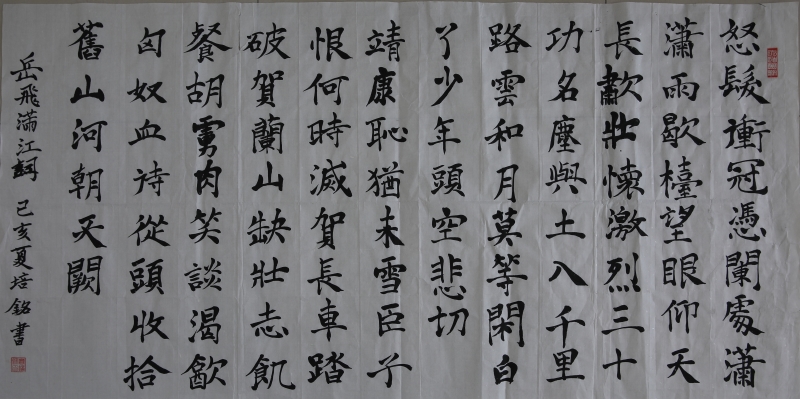 怒髮衝冠憑闌處瀟
瀟雨歇檯望眼仰天
長歗壯懷激烈三十
功名塵與土八千里
路雲和月莫等閑白
了少年頭空悲切
靖康恥猶未雪臣子
恨何時滅賀長車踏
破賀蘭山缺壯志飢
餐胡虜肉笑談渴㱃
匈奴血待從頭收拾
舊山河朝天闕
岳飛滿江詞 己亥夏培銘書